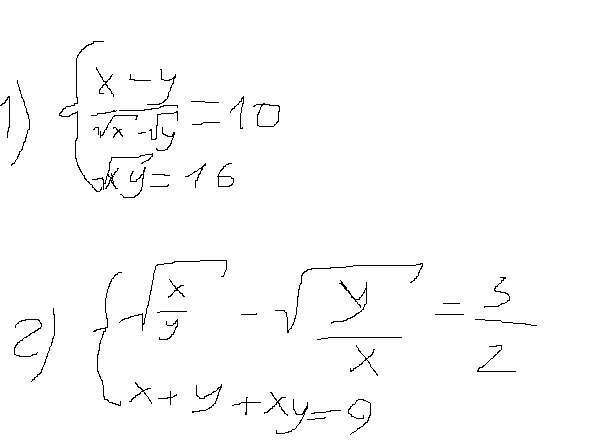 1) { (x-y)/(√x-√y) = 10
√xy = 16
2) { √(x/y) - √(y/x) = 3/2
x+y+xy=9